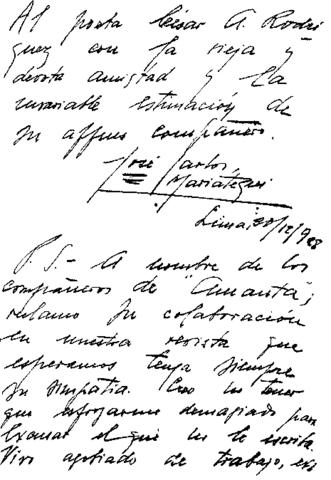 Al poeta César A. Rodrí
guez con la vieja y
devota amistad y la
invariable estimación de
su affmo compañero.
José Carlos
Mariátegui
Lima, 30/12/928
P.S.- A nombre de los
compañeros de "Amauta",
reclamo su colaboración
en nuestra revista que
esperamos tenga siempre
su simpatía. Creo no tener
que esforzarme demasiado para
excusar el que no le escriba.
Vivo agobiado de trabajo,